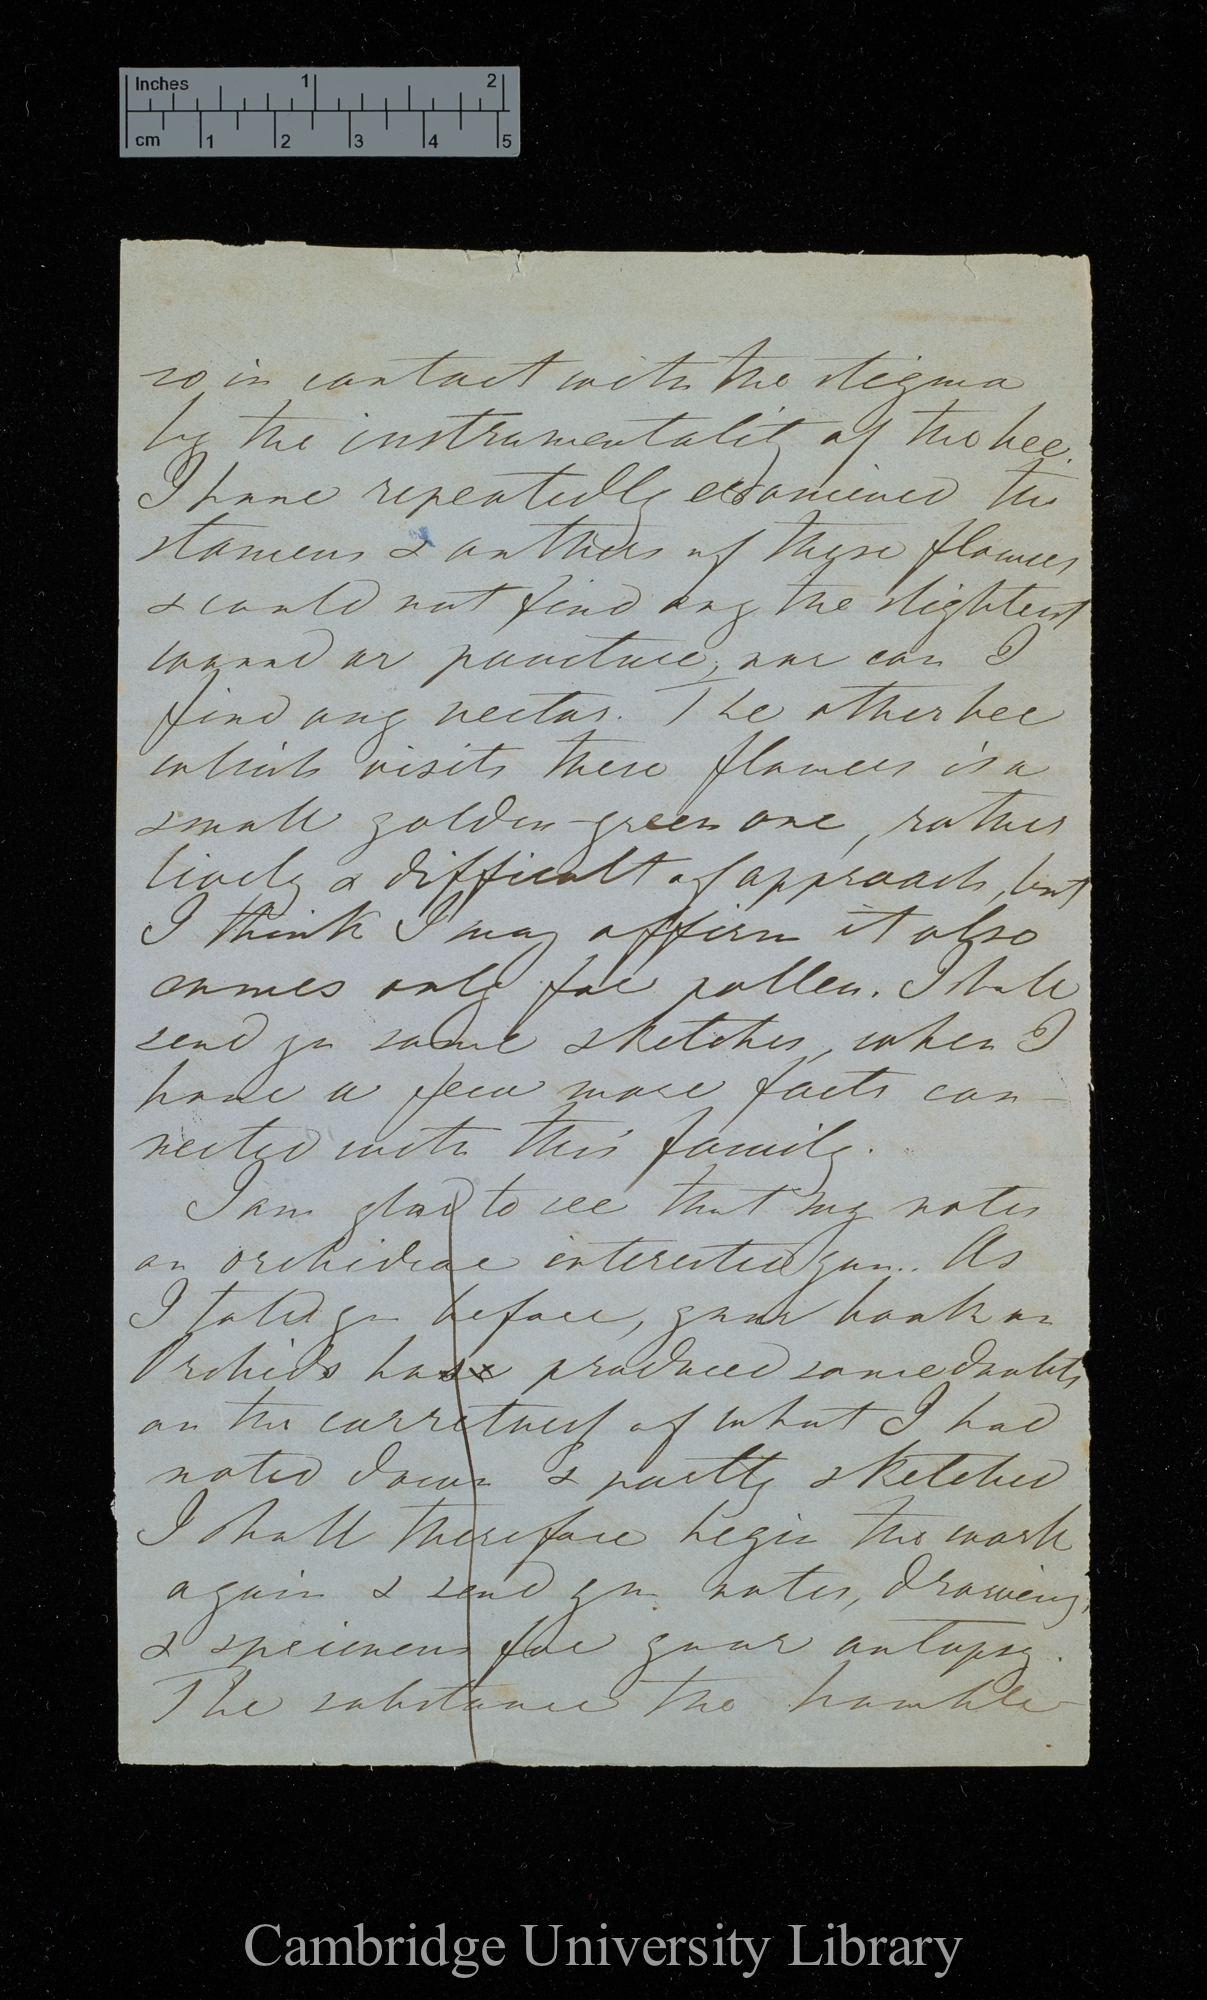 Inches 1 2
cm 1 2 3 4 5
so in contact with the stigma
by the instrumentality of the bee.
I have repeatedly examined the
stamens & anthers of these flowers
& could not find any the slightest
wound or puncture, nor can I
find any nectar. The other bee
which visits these flowers is a
small golden-green one, rather
lively & difficult of approach, but
I think I may affirm it also
comes only for pollen. I shall
send yu some sketches, when I
have a few more facts con-
nected with this family.
I am glad to see that my notes
on orchideae interested you. As
I told yu before, your book on
Orchids has produced some doubts
on the corretness of what I had
noted down & partly sketched
I shall therefore begin the work
again & send yu notes, drawings,
& specimens for your autopsy.
The substance the humble-
Cambridge University Library